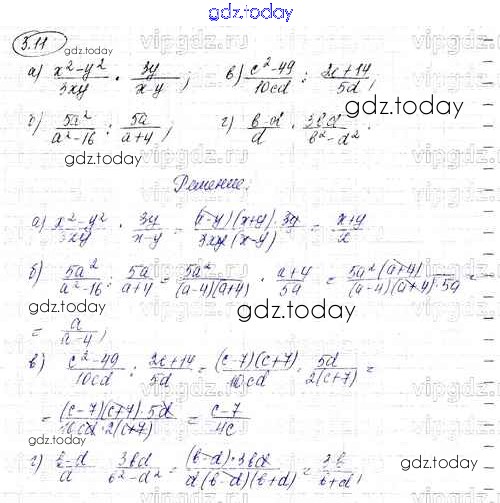 gdz.today
5.11 gdz.today
а) x²-y²/3xy · 3y/x-y ; в) c²-49/10cd : 2c+14/5d ;
б) 5a²/a²-16 : 5a/a+4 ; г) b-d/d · 3bd/b²-d² .
gdz.today
gdz.today
Решение:
а) x²-y²/3xy · 3y/x-y = (x-y)(x+y)·3y/3xy(x-y) = x+y/x
б) 5a²/a²-16 : 5a/a+4 = 5a²/(a-4)(a+4) · a+4/5a = 5a²(a+4)/(a-4)(a+4)·5a =
gdz.today
gdz.today
= a/a-4 ;
в) c²-49/10cd : 2c+14/5d = (c-7)(c+7)/10cd · 5d/2(c+7) =
= (c-7)(c+7)·5d/10cd·2(c+7) = c-7/4c
г) b-d/d 3bd/b²-d² = (b-d)·3bd/d(b-d)(b+d) = 3b/b+d ;
gdz.today
gdz.today